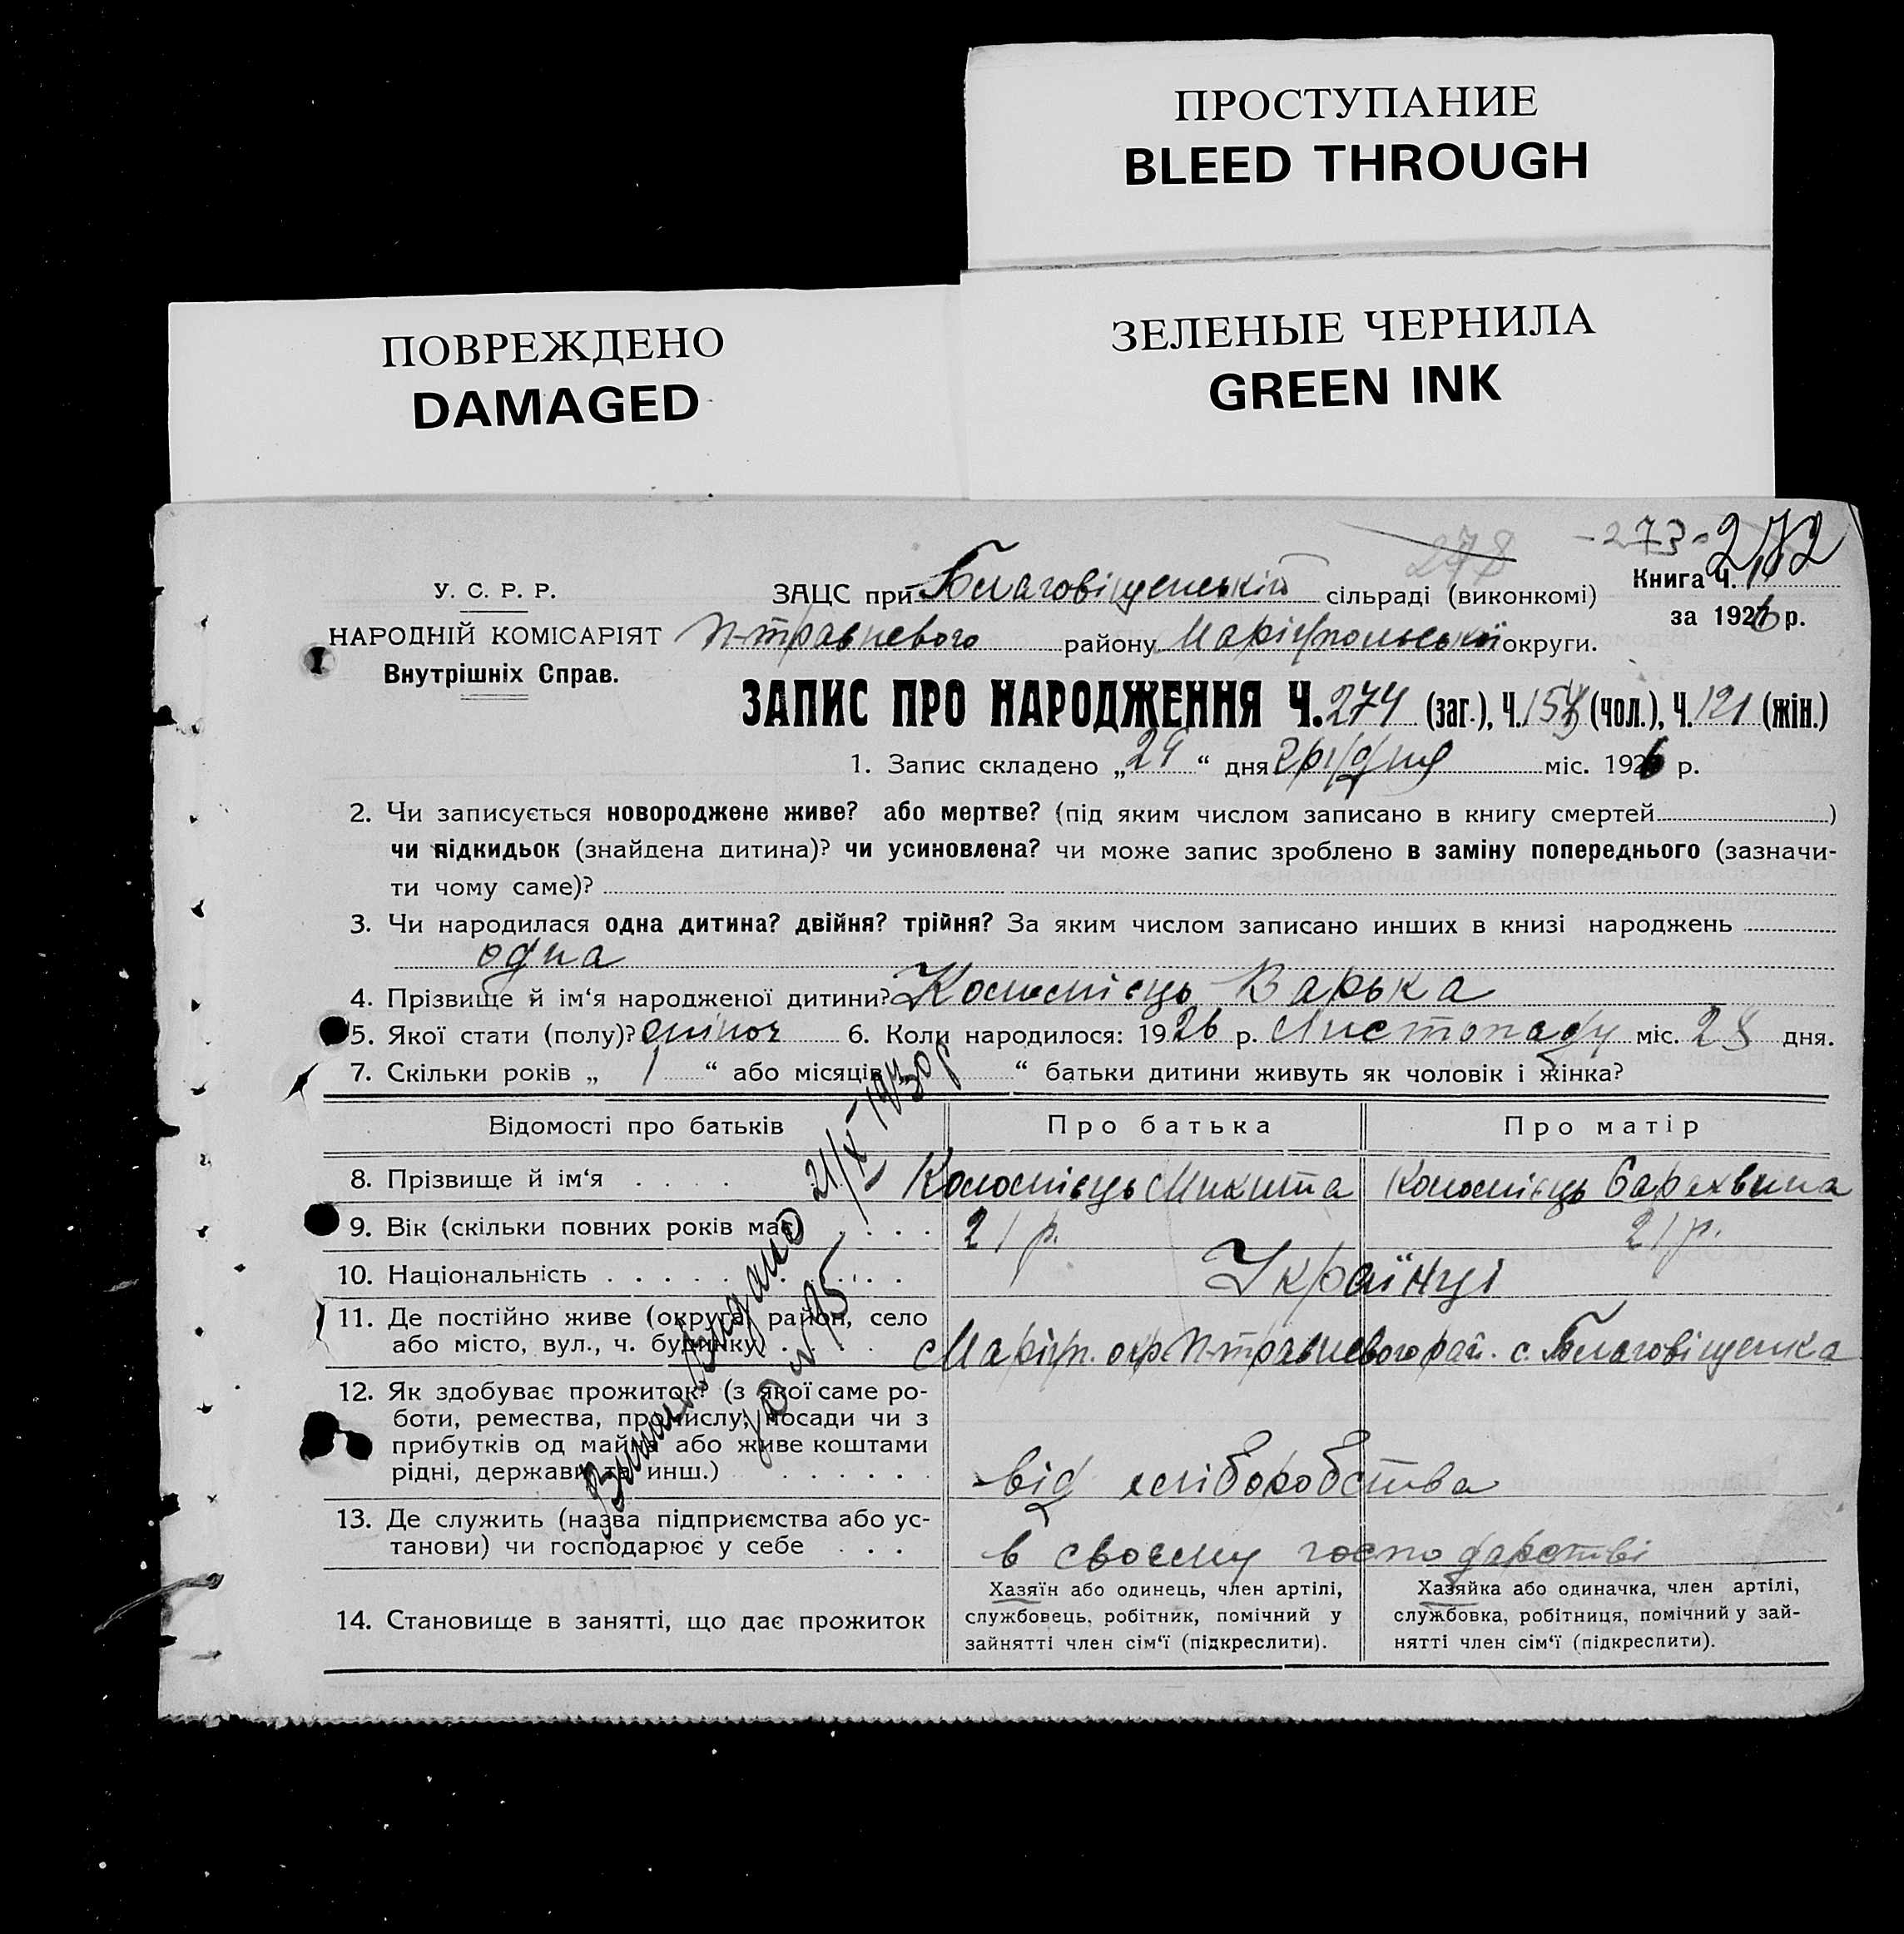 ПРОСТУПАНИЕ
BLEED THROUGH
ПОВРЕЖДЕНО
DAMAGED
ЗЕЛЕНЫЕ ЧЕРНИЛА
GREEN INK
278 -273- 272
У. С. Р. Р.
НАРОДНІЙ КОМІСАРІЯТ
Внутрішніх Справ.
ЗАЦС при Благовіщенській сільраді (виконкомі)
П-травневого району Маріупольської округи.
Книга Ч. 1
за 1926 р.
ЗАПИС ПРО НАРОДЖЕННЯ Ч. 274 (заг.), Ч. 153 (чол.), Ч. 121 (жін.)
1. Запис складено „ 29 “ дня грудня міс. 1926 р.
2. Чи записується новороджене живе? або мертве? (під яким числом записано в книгу смертей )
чи підкидьок (знайдена дитина)? чи усиновлена? чи може запис зроблено в заміну попереднього (зазначи-
ти чому саме)?
3. Чи народилася одна дитина? двійня? трійня? За яким числом записано инших в книзі народжень
одна
4. Прізвище й ім‘я народженої дитини? Коломієць Варька
5. Якої стати (полу)? жіноч 6. Коли народилося: 1926 р. Листопаду міс. 28 дня.
7. Скільки років „ 1 “ або місяців “ батьки дитини живуть як чоловік і жінка?
Відомості про батьків Про батька Про матір
8. Прізвище й ім‘я . . . . Коломієць Микита Коломієць
9. Вік (скільки повних років має) . . . . 21 р. 21 р.
10. Національність . . . . . . . . . . Українці
11. Де постійно живе (округа, район, село
або місто, вул., ч. будинку) . . . . Маріуп. окр. П-травневого рай. с. Благовіщенка
12. Як здобуває прожиток? (з якої саме ро-
боти, ремества, промислу, посади чи з
прибутків од майна або живе коштами
рідні, держави та инш.) . . . . . . від хліборобства
13. Де служить (назва підприємства або ус-
танови) чи господарює у себе . . . в своєму господарстві
14. Становище в занятті, що дає прожиток
Хазяїн або одинець, член артілі,
службовець, робітник, помічний у
зайнятті член сім‘ї (підкреслити).
Хазяйка або одиначка, член артілі,
службовка, робітниця, помічний у зай-
нятті член сім‘ї (підкреслити).
Видано 21/X 1930 р